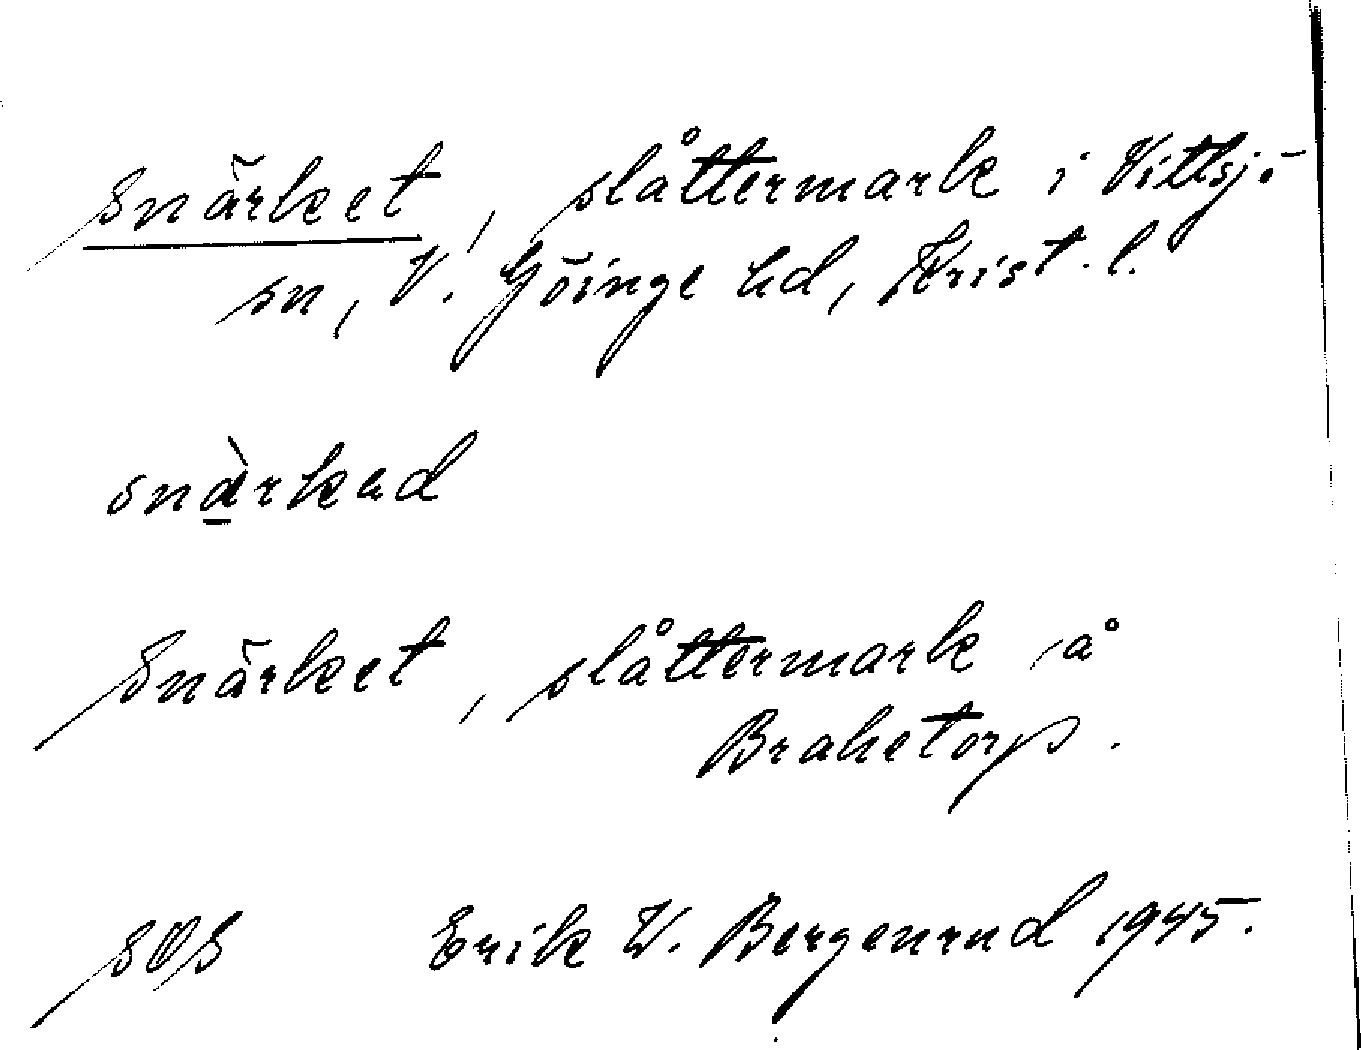 Snärket, slåttermark i Vittsjö
sn, V. Göinge hd, Krist. l.
snàrkad
Snärket, slåttermark å
Brahetorp.
SOS Erik W. Bergenrud 1945.